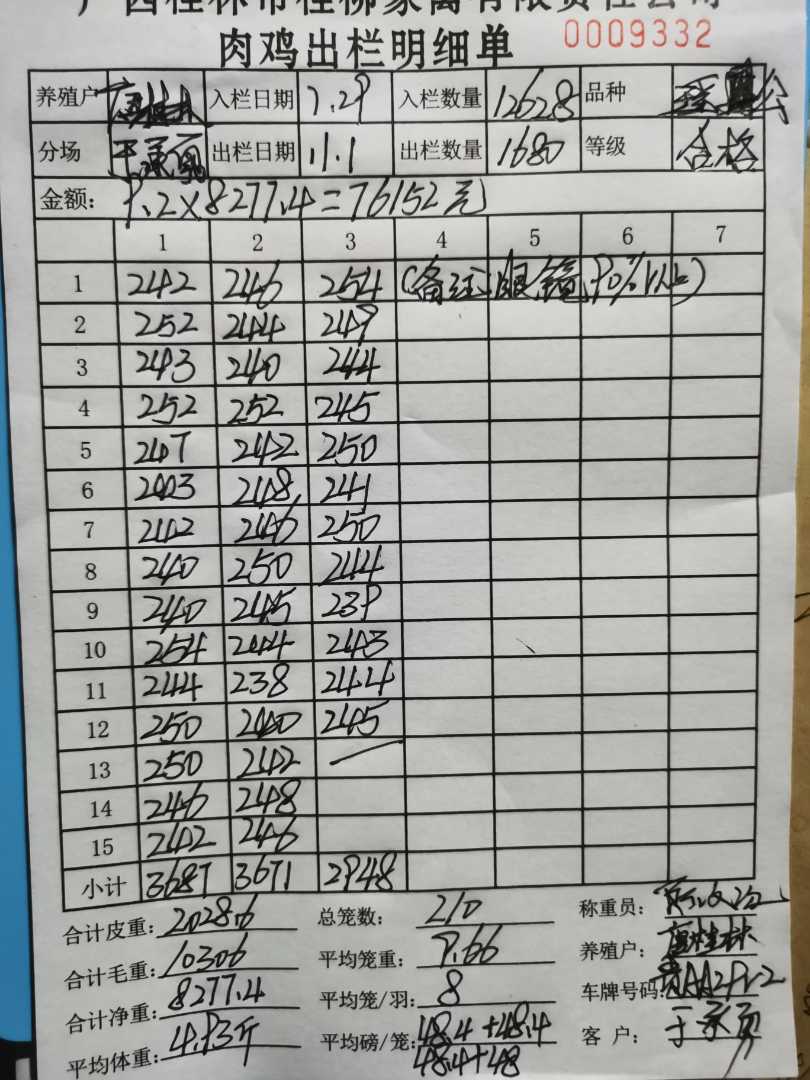 广西桂林市桂柳家禽有限责任公司
肉鸡出栏明细单 0009332
养殖户 入栏日期 7.29 入栏数量 12628 品种 公
分场 出栏日期 11.1 出栏数量 1680 等级 合格
金额: 9.2×8277.4=76152元
1 2 3 4 5 6 7
1 242 246 254 (备注:眼镜90%以上)
2 252 244 249
3 243 240 244
4 252 252 245
5 247 242 250
6 243 248 241
7 242 246 250
8 240 250 244
9 240 245 239
10 254 244 243
11 244 238 244
12 250 240 245
13 250 242 —
14 246 248
15 242 246
小计 3687 3671 2948
合计皮重: 2028.6 总笼数: 210 称重员:
合计毛重: 10306 平均笼重: 9.66 养殖户:
合计净重: 8277.4 平均笼/羽: 8 车牌号码:
平均体重: 4.93斤 平均磅/笼: 48.4+48.4 客户:
48.4+48